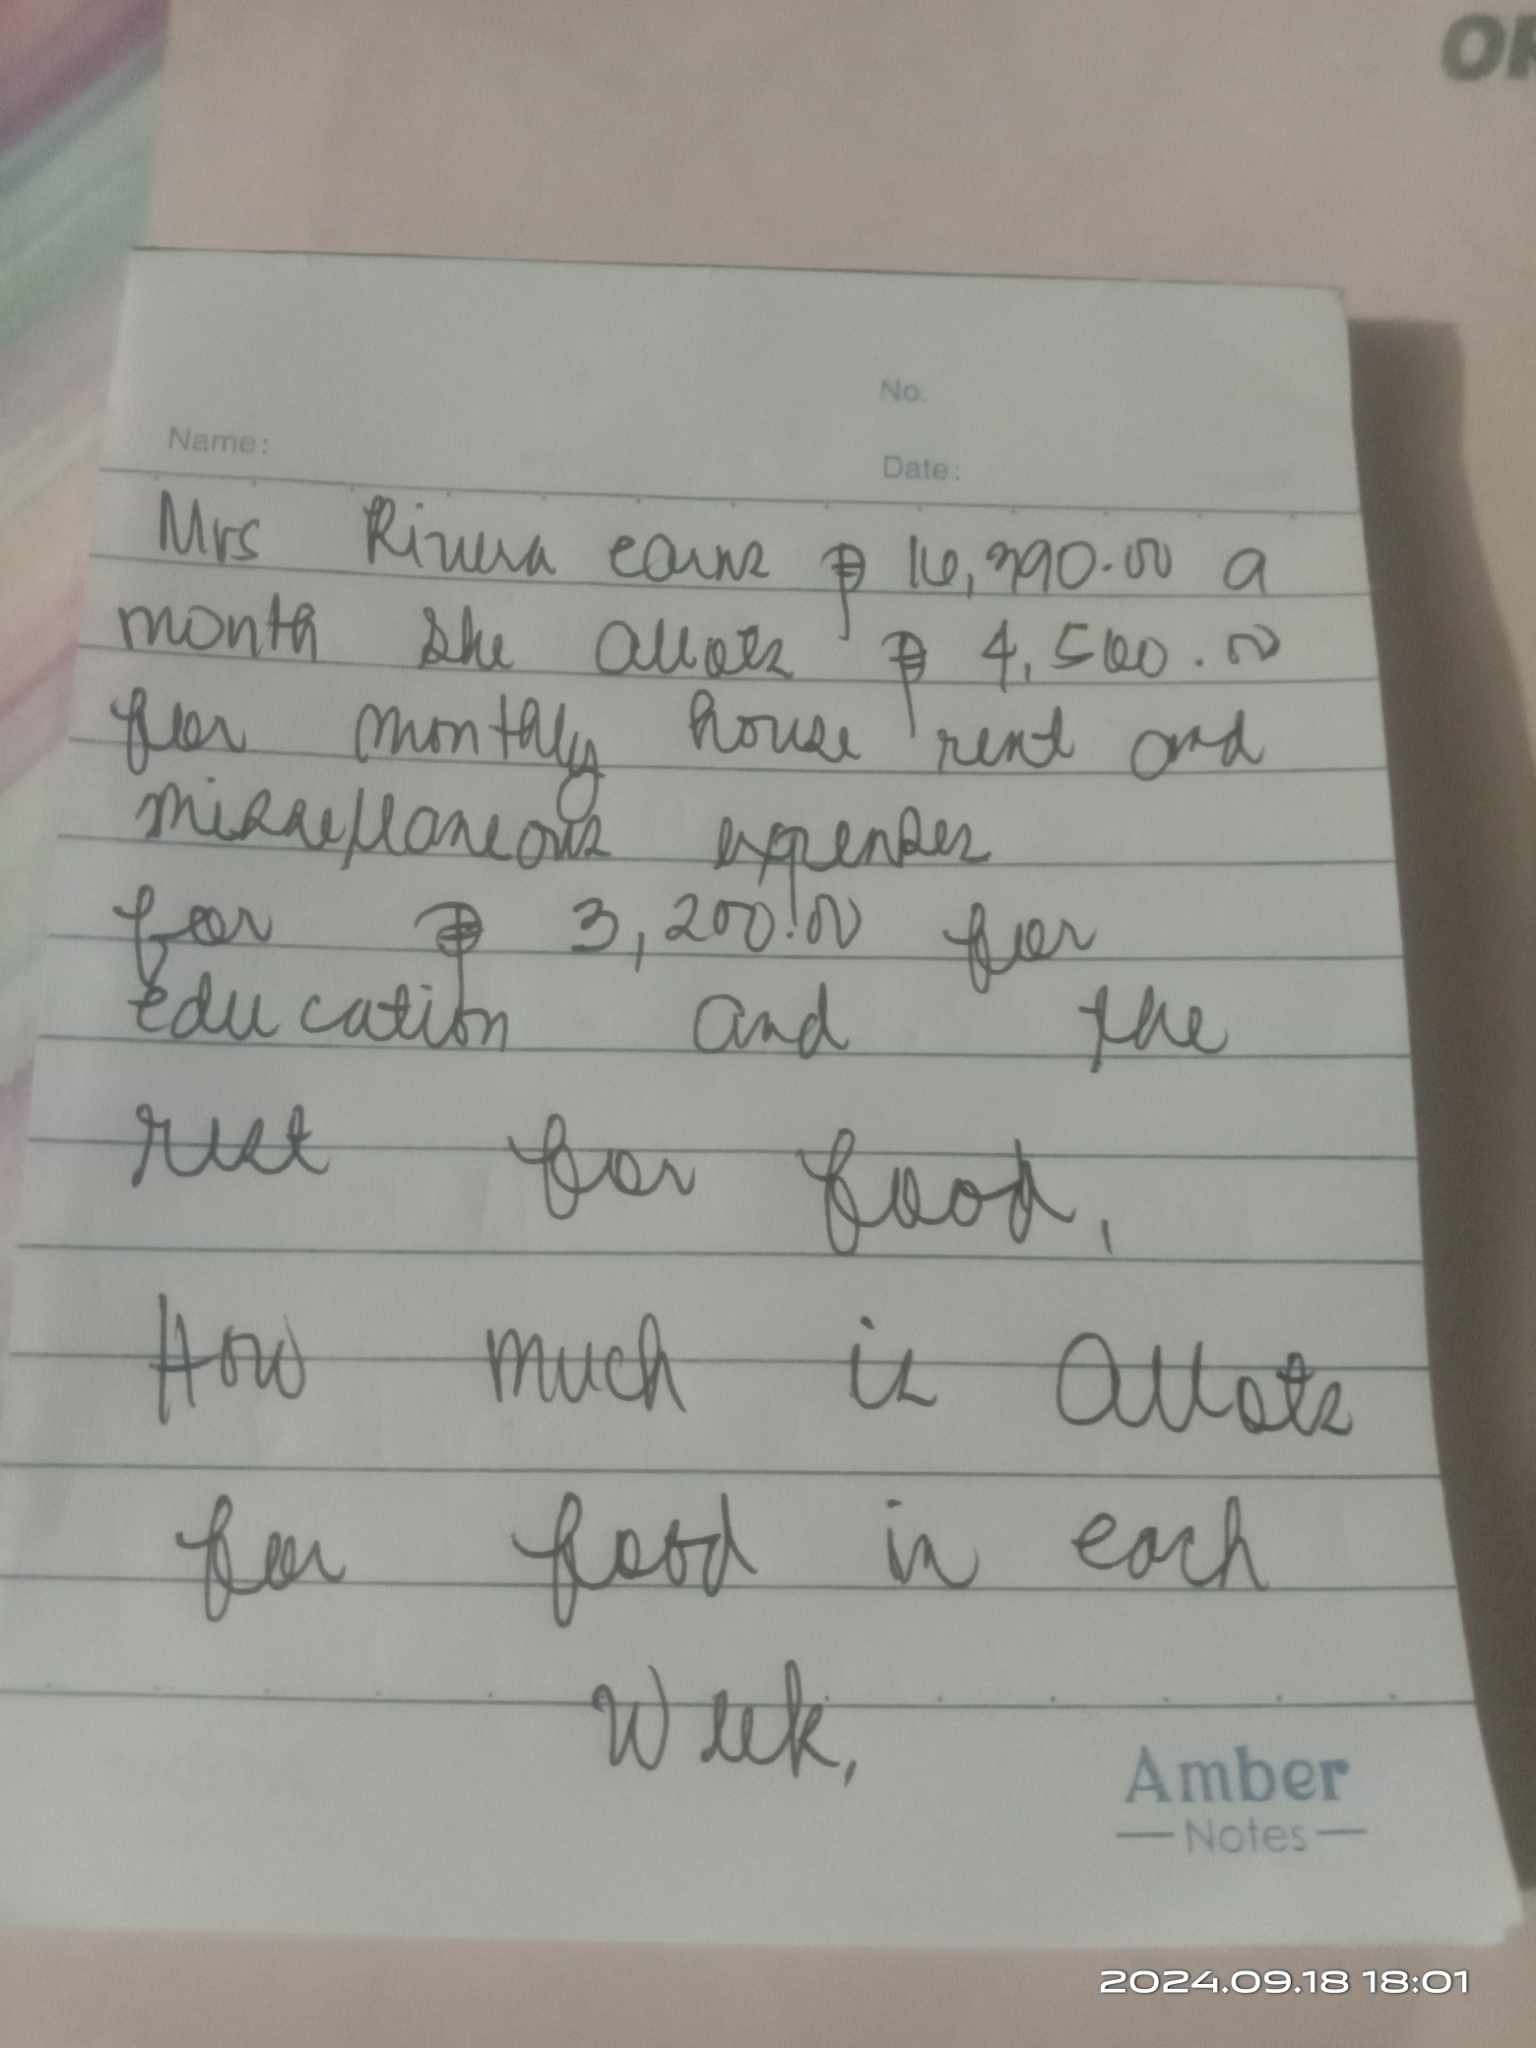 OR
No.
Name:
Date:
Mrs Rivera earns ₱ 16,390.00 a
month she allots ₱ 4,500.00
for monthly house rent and
miscellaneous expenses
for ₱ 3,200.00 for
education and for the
rest for food,
How much is allots
for food in each
Week,
Amber
Notes
2024.09.18 18:01